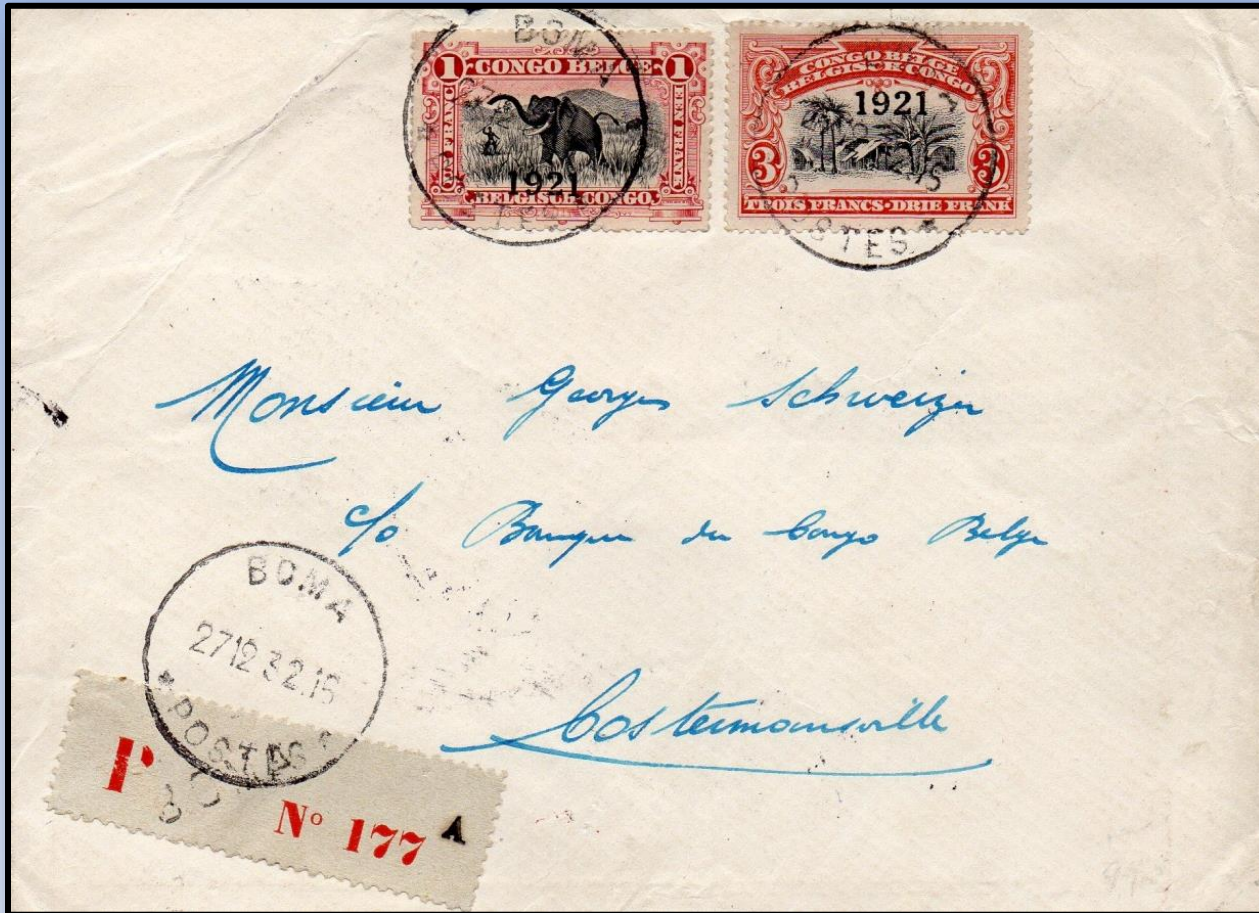 BOMA
1 CONGO BELGE 1
UN FRANC
EEN FRANK
1921
BELGISCH CONGO
CONGO BELGE
BELGISCH CONGO
1921
3 3
TROIS FRANCS·DRIE FRANK
POSTES
Monsieur Georges Schweizer
c/o Banque du Congo Belge
Costermansville
BOMA
27 12 32.15
* POSTES *
Nº 177 A